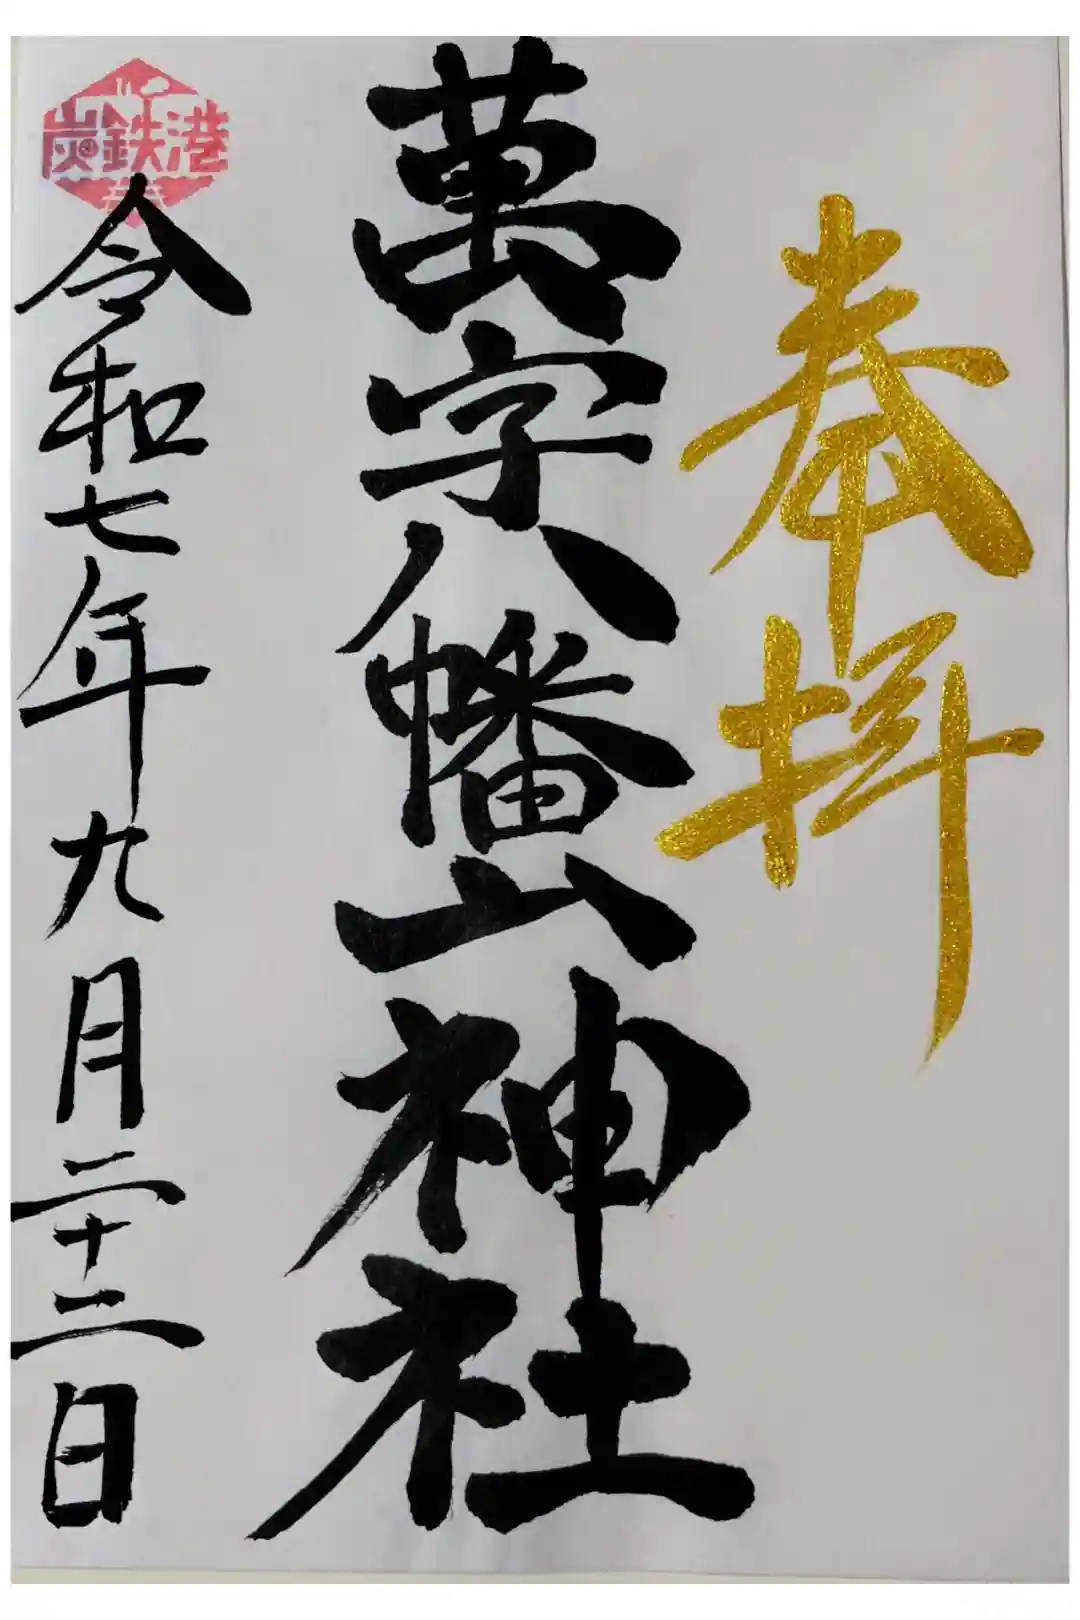 奉拝
萬字八幡山神社
炭鉄港
令和七年九月二十二日